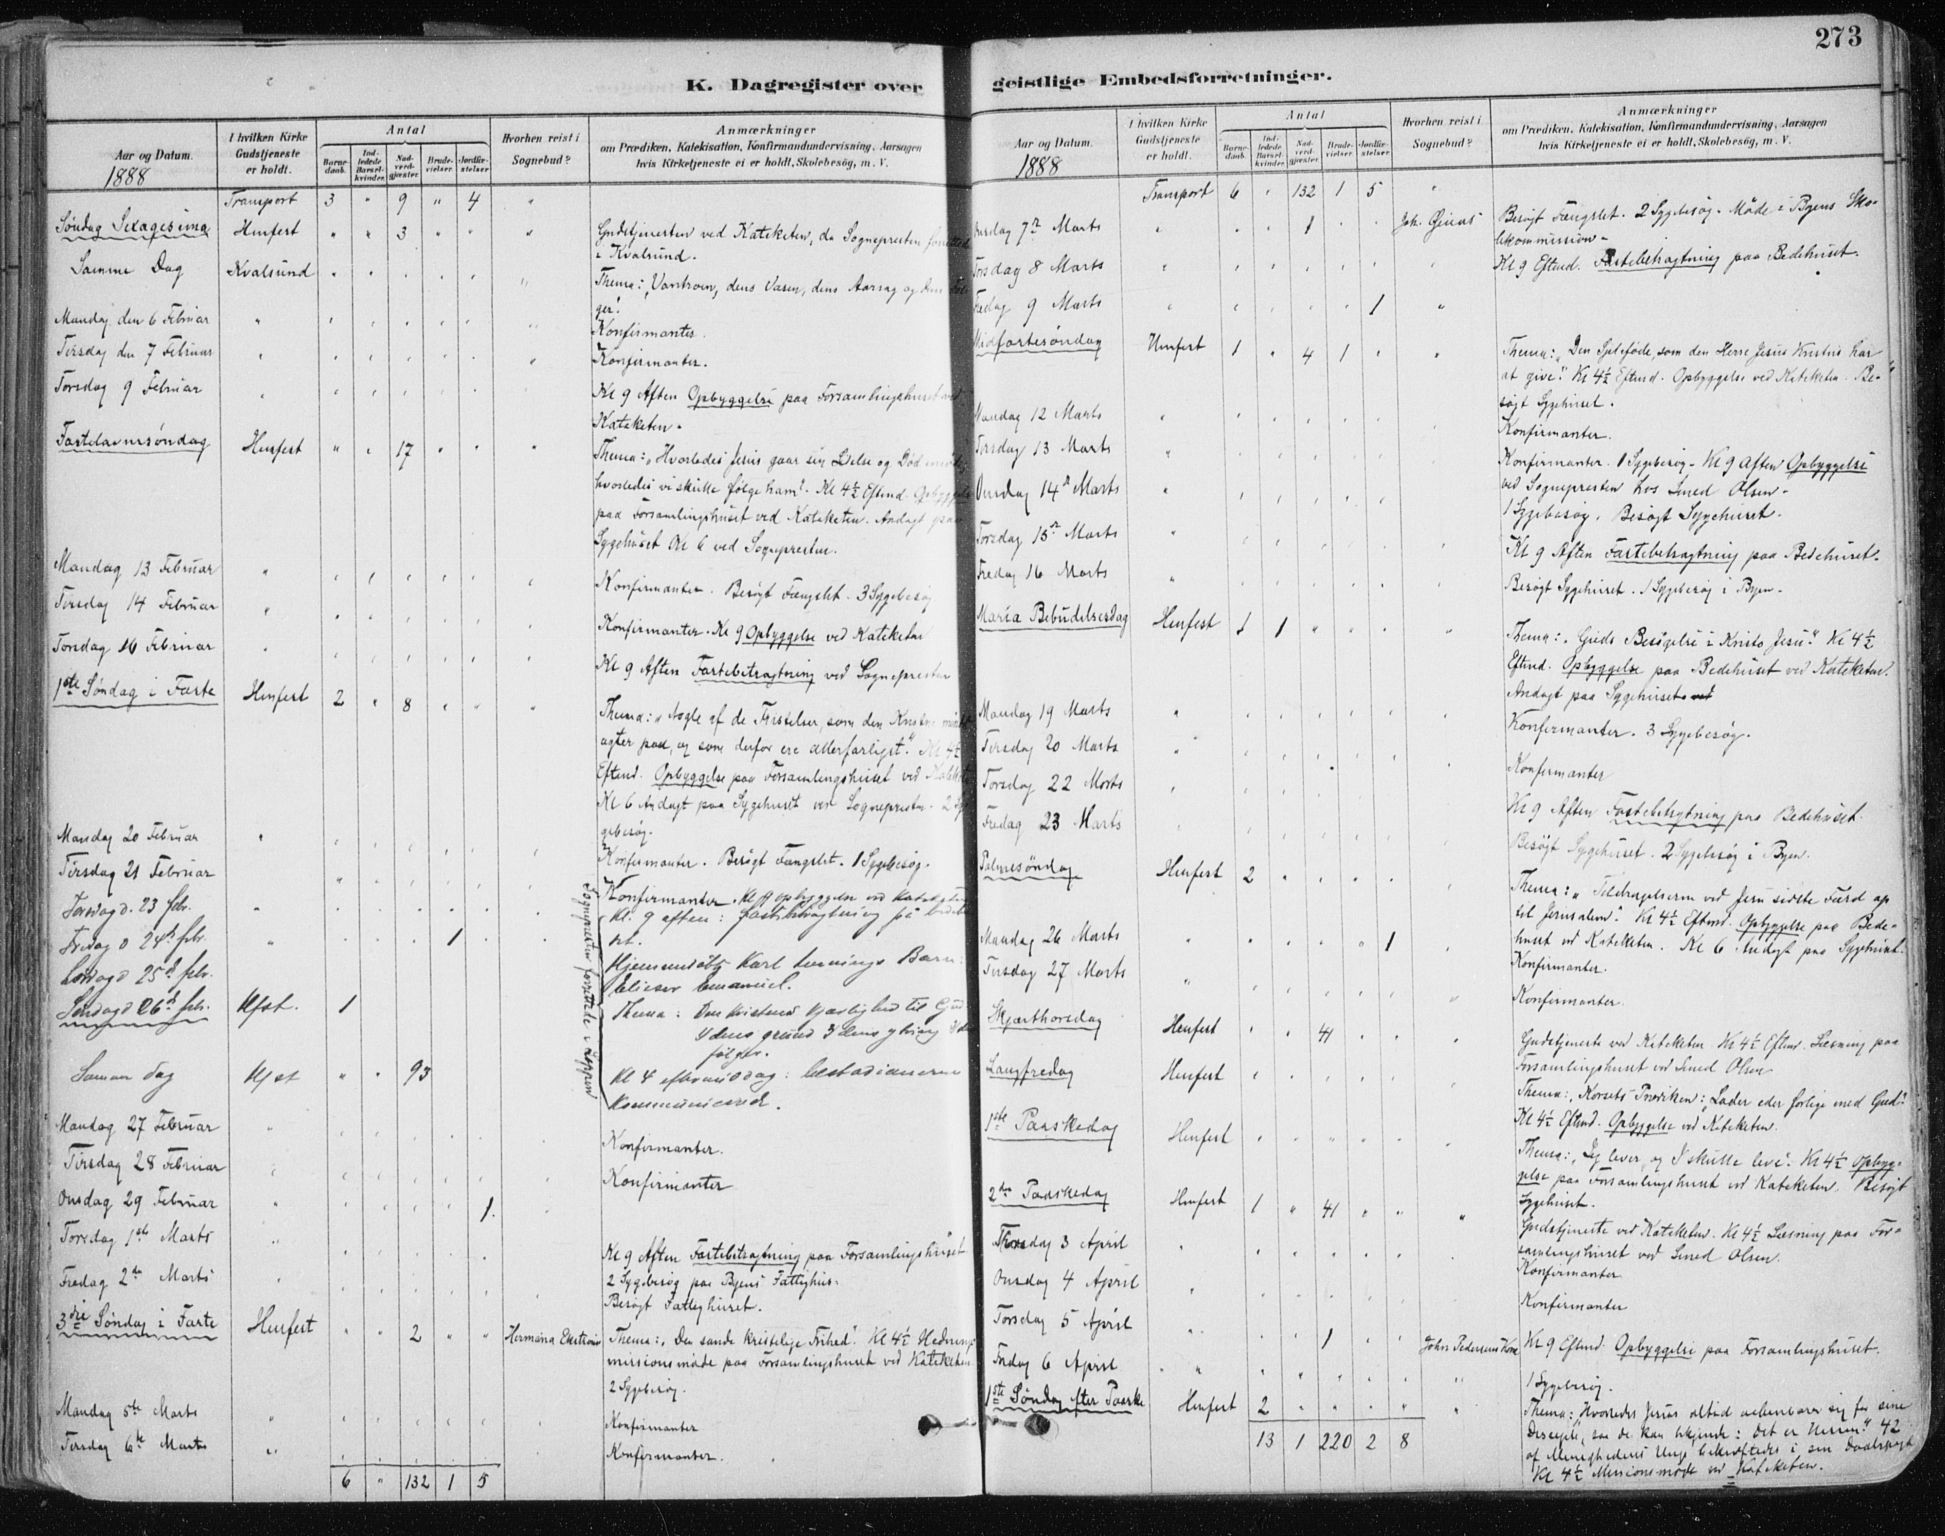 273
K. Dagregister over
Aar og Datum.
1888
I hvilken Kirke Gudstjeneste er holdt.
Antal
Barnedaab.
Indledede Barselkvinder.
Nadverdgjæster.
Brudevielser.
Jordfæstelser.
Hvorhen reist i Sognebud?
Anmærkninger
om Prædiken, Katekisation, Konfirmandundervisning, Aarsagen
hvis Kirketjeneste ei er holdt, Skolebesøg, m. V.
Transport 3 " 9 " 4 "
Søndag Sexagesima Hmfest " " 3 " " " Gudstjenesten ved Kateketen, da Sognepresten forrettede
i Kvalsund.
Samme Dag Kvalsund Thema: "Vantroen, dens Væsen, dens Aarsag og dens Føl-
ger."
Mandag den 6 Februar Konfirmanter.
Tirsdag den 7 Februar Konfirmanter.
Torsdag 9 Februar Kl 9 Aften Opbyggelse paa Forsamlingshuset ved
Kateketen.
Fastelavnssøndag Hmfest " " 17 " " " Thema: "Hvorledes Jesus gaar sin Lidelse og Død imøde,
hvorledes vi skulle følge ham". Kl 4½ Eftmd. Opbyggelse
paa Forsamlingshuset ved Kateketen. Andagt paa
Sygehuset Kl 6 ved Sognepresten.
Mandag 13 Februar Konfirmanter. Besøgt Fængslet. 3 Sygebesøg
Tirsdag 14 Februar Konfirmanter. Kl 9 Opbyggelse ved Kateketen
Torsdag 16 Februar Kl 9 Aften Fastebetragtning ved Sognepresten
1ste Søndag i Faste Hmfest 2 " 8 " " " Thema: "Nogle af de Fristelser, som den Kristne mindst
agter paa, og som derfor ere allerfarligst." Kl 4½
Eftmd. Opbyggelse paa Forsamlingshuset ved Kateket.
Kl 6 Andagt paa Sygehuset ved Sognepresten. 2 Sy-
gebesøg.
Mandag 20 Februar Konfirmanter. Besøgt Fængslet. 1 Sygebesøg.
Tirsdag 21 Februar Konfirmanter. Kl 9 opbyggelse ved Kateketen
Torsdag d. 23 febr. Kl. 9 aften: fastebetragtning på bedehu-
set.
Fredag d 24de febr. 1
Lørdag d 25de febr. Hjemmedøbt Karl Barn:
Elieser Emanuel.
Søndag d 26de febr. Hfst. 1 Thema: Den kristnes kjærlighed til Gud
1 dens grund 2 dens ytring 3 dens
følger.
Samme dag Hfst " " 93 Kl 4 eftermiddag:
kommunicered.
Sognepresten forrettede i
Mandag 27 Februar Konfirmanter.
Tirsdag 28 Februar Konfirmanter
Onsdag 29 Februar 1.
Torsdag 1ste Marts Kl 9 Aften Fastebetragtning paa Forsamlingshuset
2 Sygebesøg paa Byens Fattighus.
Fredag 2den Marts Besøgt Fattighuset.
3die Søndag i Faste Hmfest " " 2 " " Hermana Thema: "Den sande kristelige Frihed". Kl 4½ Hedninge-
missionsmøde paa Forsamlingshuset ved Kateketen.
2 Sygebesøg.
Mandag 5te Marts Konfirmanter
Tirsdag 6te Marts Konfirmanter.
6 " 132 1 5
geistlige Embedsforretninger.
Aar og Datum.
1888
I hvilken Kirke Gudstjeneste er holdt.
Antal
Barnedaab.
Indledede Barselkvinder.
Nadverdgjæster.
Brudevielser.
Jordfæstelser.
Hvorhen reist i Sognebud?
Anmærkninger
om Prædiken, Katekisation, Konfirmandundervisning, Aarsagen
hvis Kirketjeneste ei er holdt, Skolebesøg, m. V.
Transport 6 " 132 1 5 "
Onsdag 7de Marts 1 Joh. Besøgt Fængslet. 2 Sygebesøg. Møde i Byens Sko-
lekommission.
Torsdag 8 Marts Kl 9 Eftmd. Fastebetragtning paa Bedehuset.
Fredag 9 Marts 1
Midfastesøndag Hmfest 1 " 4 1 " " Thema: "Den Sjeleføde, som den Herre Jesus Kristus har
at give". Kl 4½ Eftmd. Opbyggelse ved Kateketen. Be-
søgt Sygehuset.
Mandag 12 Marts Konfirmanter.
Tirsdag 13 Marts Konfirmanter. 1 Sygebesøg. Kl 9 Aften Opbyggelse
ved Sognepresten hos Smed Olsen.
Onsdag 14de Marts 1 Sygebesøg. Besøgt Sygehuset.
Torsdag 15de Marts Kl 9 Aften Fastebetragtning paa Bedehuset.
Fredag 16 Marts Besøgt Sygehuset. 1 Sygebesøg i Byen.
Maria Bebudelsesdag Hmfest 1 1 " " " " Thema: "Guds Besøgelse i Kristo Jesu." Kl 4½
Eftmd. Opbyggelse paa Bedehuset ved Kateketen.
Andagt paa Sygehuset ved
Mandag 19 Marts Konfirmanter. 3 Sygebesøg.
Tirsdag 20 Marts Konfirmanter
Torsdag 22 Marts Kl 9 Aften Fastebetragtning paa Bedehuset.
Fredag 23 Marts Besøgt Sygehuset. 2 Sygebesøg i Byen.
Palmesøndag Hmfest 2 Thema: "Tildragelserne ved Jesu sidste Færd op
til Jerusalem". Kl 4½ Eftmd. Opbyggelse paa Bede-
huset ved Kateketen. Kl 6 Andagt paa Sygehuset.
Mandag 26 Marts 1 Konfirmanter.
Tirsdag 27 Marts Konfirmanter.
Skjærthorsdag Hmfest " " 41 " " " Gudstjeneste ved Kateketen. Kl 4½ Eftmd. Læsning paa
Forsamlingshuset ved Smed Olsen
Langfredag Hmfest Thema: "Korsets Prædiken: "Lader eder forlige med Gud."
Kl 4½ Eftmd. Opbyggelse ved Kateketen.
1ste Paaskedag Hmfest Thema: "Jeg lever, og I skulle leve". Kl 4½ Opbyg-
gelse paa Forsamlingshuset ved Kateketen. Besøgt
Sygehuset.
2den Paaskedag Hmfest 1 " 41 " " " Gudstjeneste ved Kateketen. Kl 4½ Læsning paa For-
samlingshuset ved Smed Olsen.
Tirsdag 3 April Konfirmanter
Onsdag 4 April Konfirmanter
Torsdag 5 April 1 John Pedersens Kone Kl 9 Eftmd. Opbyggelse paa Forsamlingshuset.
Fredag 6 April 1 Sygebesøg.
1ste Søndag efter Paaske Hmfest 2 Thema: "Hvorledes Jesus altid aabenbarer sig for sine
Disciple, saa de kan bekjende: det er Herren." 42
af Menighedens Unge bekræftedes i sin Daabspagt
Kl 4½ Missionsmøde ved Kateketen.
13 1 220 2 8